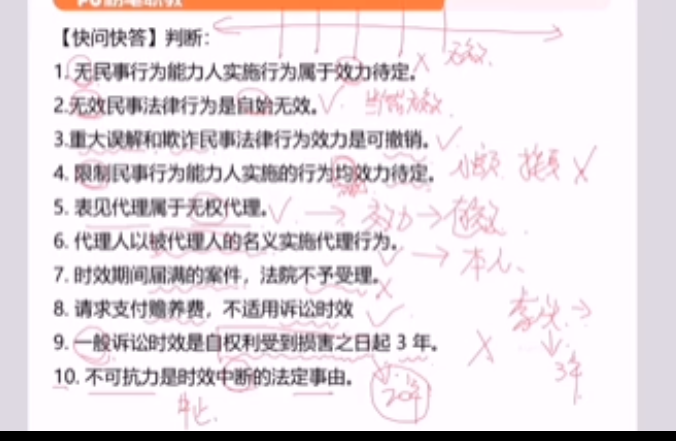 【快问快答】判断：
1. 无民事行为能力人实施行为属于效力待定。 无效.
2.无效民事法律行为是自始无效。 当然无效.
3.重大误解和欺诈民事法律行为效力是可撤销。
4. 限制民事行为能力人实施的行为均效力待定。
5. 表见代理属于无权代理。 → 效力 → 有效.
6. 代理人以被代理人的名义实施代理行为。 → 本人.
7. 时效期间届满的案件，法院不予受理。
8. 请求支付赡养费，不适用诉讼时效
9. 一般诉讼时效是自权利受到损害之日起 3 年。 3年
10. 不可抗力是时效中断的法定事由。 20年
中止.